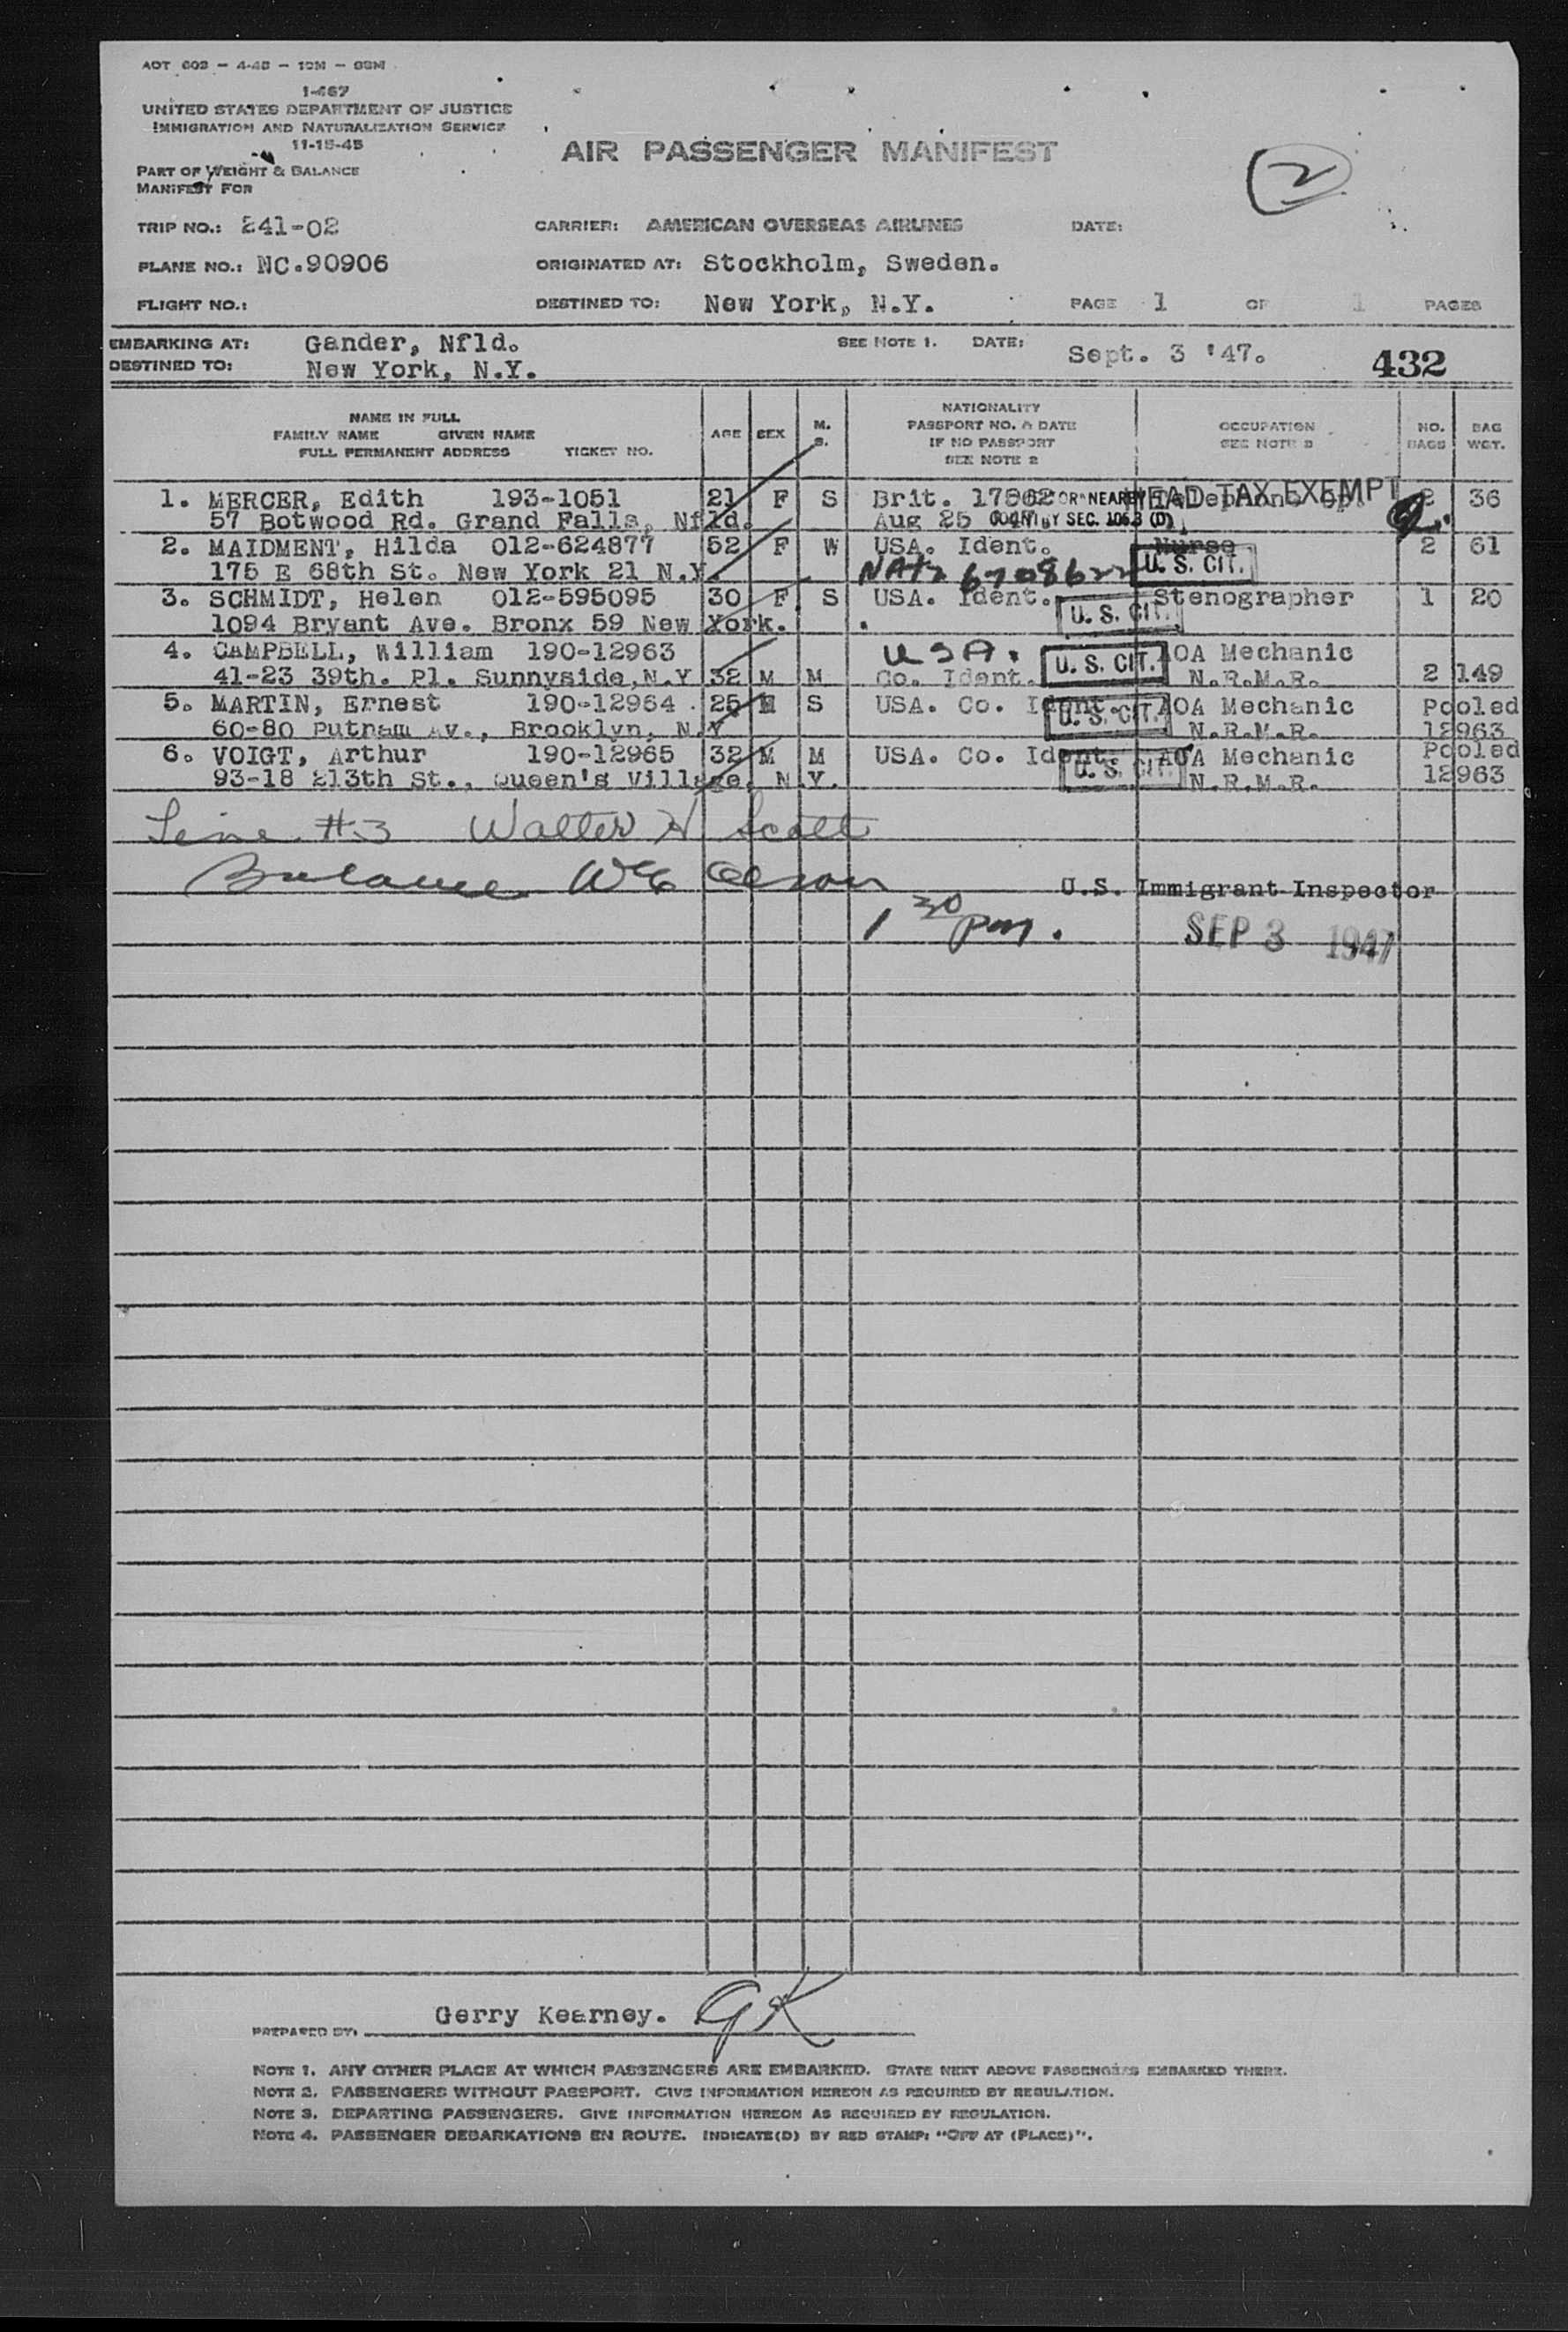 AOT 602 — 4-45 — 10M — SSM
1-467
UNITED STATES DEPARTMENT OF JUSTICE
IMMIGRATION AND NATURALIZATION SERVICE
11-15-45
AIR PASSENGER MANIFEST
2
PART OF WEIGHT & BALANCE
MANIFEST FOR
TRIP NO.: 241-02 CARRIER: AMERICAN OVERSEAS AIRLINES DATE:
PLANE NO.: NC.90906 ORIGINATED AT: Stockholm, Sweden.
FLIGHT NO.: DESTINED TO: New York, N.Y. PAGE 1 OF 1 PAGES
EMBARKING AT: Gander, Nfld. SEE NOTE 1. DATE: Sept. 3 '47. 432
DESTINED TO: New York, N.Y.
NAME IN FULL
FAMILY NAME GIVEN NAME
FULL PERMANENT ADDRESS TICKET NO.
AGE SEX M. S.
NATIONALITY
PASSPORT NO. & DATE
IF NO PASSPORT
SEE NOTE 2
OCCUPATION
SEE NOTE 3
NO. BAGS
BAG WGT.
1. MERCER, Edith 193-1051 21 F S Brit. 17862 OR NEARBY HEAD TAX EXEMPT Telephone Op. 2 36
57 Botwood Rd. Grand Falls, Nfld. Aug 25 BY SEC. 105.3 (D)
2. MAIDMENT, Hilda 012-624877 52 F W USA. Ident. Nurse 2 61
175 E 68th St. New York 21 N.Y. NATZ 6708622 U. S. CIT.
3. SCHMIDT, Helen 012-595095 30 F S USA. Ident. Stenographer 1 20
1094 Bryant Ave. Bronx 59 New York. U. S. CIT.
4. CAMPBELL, William 190-12963 USA. U. S. CIT. AOA Mechanic
41-23 39th. Pl. Sunnyside, N.Y 32 M M Co. Ident. N.R.M.R. 2 149
5. MARTIN, Ernest 190-12964 25 M S USA. Co. Ident. U. S. CIT. AOA Mechanic Pooled
60-80 Putnam Av., Brooklyn, N.Y N.R.M.R. 12963
6. VOIGT, Arthur 190-12965 32 M M USA. Co. Ident. U. S. CIT. AOA Mechanic Pooled
93-18 213th St., Queen's Village, N.Y. N.R.M.R. 12963
Line #3 Walter H. Scott
Balance
U.S. Immigrant Inspector
1 30 pm.
SEP 3 1947
PREPARED BY: Gerry Kearney. GK
NOTE 1. ANY OTHER PLACE AT WHICH PASSENGERS ARE EMBARKED. STATE NEXT ABOVE PASSENGERS EMBARKED THERE.
NOTE 2. PASSENGERS WITHOUT PASSPORT. GIVE INFORMATION HEREON AS REQUIRED BY REGULATION.
NOTE 3. DEPARTING PASSENGERS. GIVE INFORMATION HEREON AS REQUIRED BY REGULATION.
NOTE 4. PASSENGER DEBARKATIONS EN ROUTE. INDICATE(D) BY RED STAMP: "OFF AT (PLACE)".